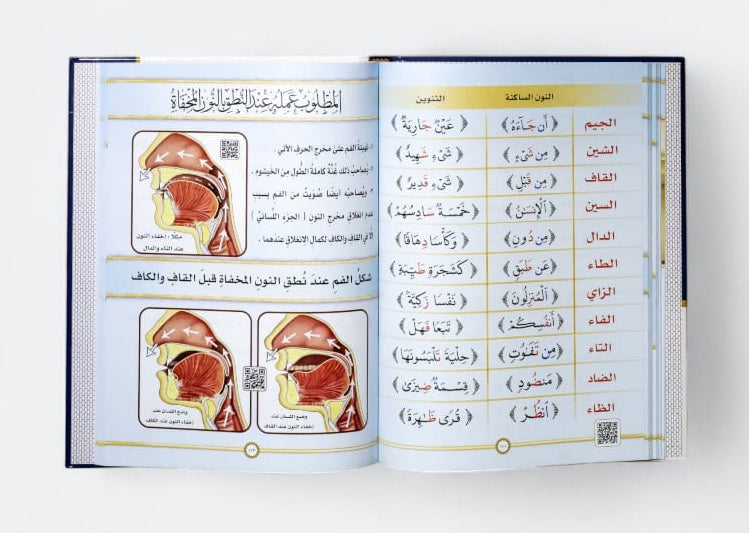 النون الساكنة التنوين
الجيم ﴿ أَن جَآءَهُ ﴾ ﴿ عَيْنٌ جَارِيَةٌ ﴾
الشين ﴿ مِن شَىْءٍ ﴾ ﴿ شَىْءٍ شَهِيدٌ ﴾
القاف ﴿ مِن قَبْلِ ﴾ ﴿ شَىْءٍ قَدِيرٌ ﴾
السين ﴿ ٱلْإِنسَٰنُ ﴾ ﴿ خَمْسَةٌ سَادِسُهُمْ ﴾
الدال ﴿ مِن دُونِ ﴾ ﴿ وَكَأْسًا دِهَاقًا ﴾
الطاء ﴿ عَن طَبَقٍ ﴾ ﴿ كَشَجَرَةٍ طَيِّبَةٍ ﴾
الزاي ﴿ ٱلْمُنزِلُونَ ﴾ ﴿ نَفْسًا زَكِيَّةً ﴾
الفاء ﴿ أَنفُسِكُمْ ﴾ ﴿ تَبَعًا فَهَلْ ﴾
التاء ﴿ مِن تَفَٰوُتٍ ﴾ ﴿ حِلْيَةً تَلْبَسُونَهَا ﴾
الضاد ﴿ مَّنضُودٍ ﴾ ﴿ قِسْمَةٌ ضِيزَىٰٓ ﴾
الظاء ﴿ ٱنظُرْ ﴾ ﴿ قُرًى ظَٰهِرَةً ﴾
المطلوب عمله عند النطق بالنون المخفاة
١- تهيئة الفم على مخرج الحرف الآتي .
٢- يُصاحبُ ذلك غُنَّة كاملة الطُّول من الخيشوم .
٣- ويُصاحبُه أيضًا صُويتٌ من الفم بسبب
عدم انغلاق مخرج النون ( الجزء اللِّساني )
إلَّا في القاف والكاف لكمال الانغلاق عندهما .
مثلًا : إخفاء النون
عند التاء والدال
شكلُ الفمِ عندَ نُطقِ النونِ المخفاةِ قبلَ القافِ والكاف
وضع اللسان عند
إخفاء النون عند القاف
وضع اللسان عند
إخفاء النون عند الكاف
١١٣